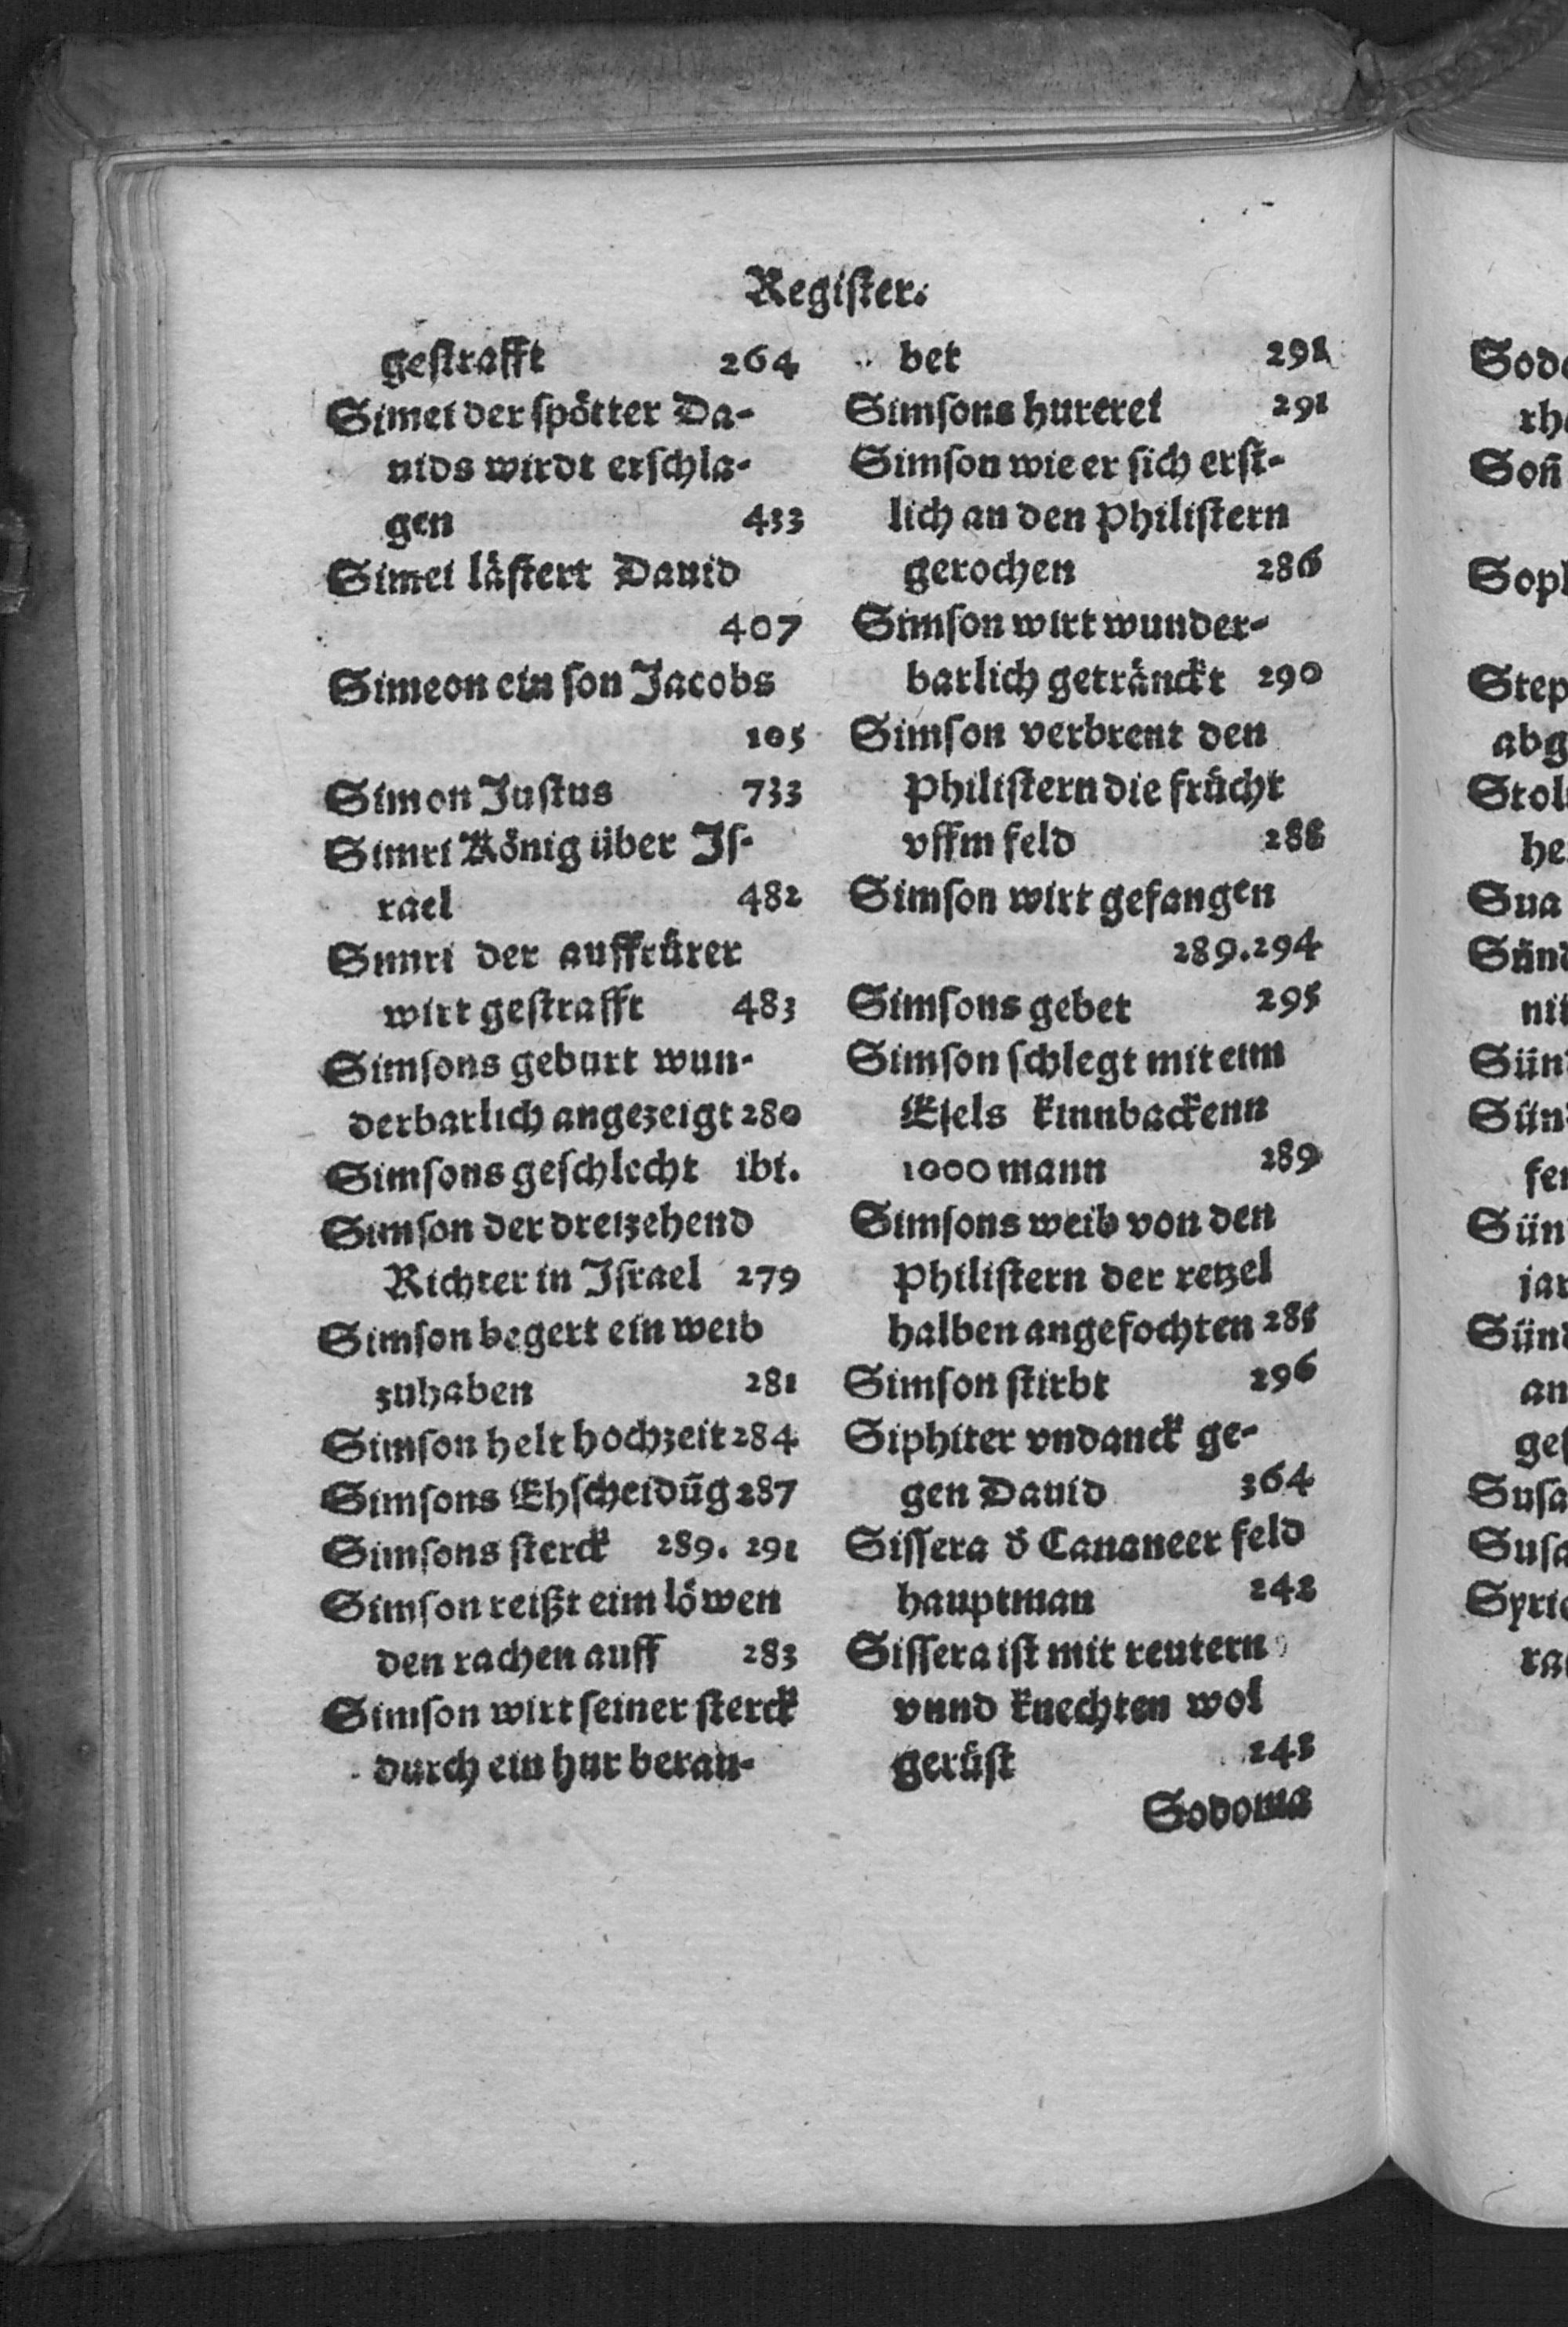 Register.
gestrafft 264
Simei der spötter Da-
uids wirdt erschla-
gen 433
Simei lästert Dauid
407
Simeon ein son Jacobs
105
Simon Justus 733
Simri König über Is-
rael 482
Simri der auffrůrer
wirt gestrafft 483
Simsons geburt wun-
derbarlich angezeigt 280
Simsons geschlecht ibi.
Simson der dreizehend
Richter in Israel 279
Simson begert ein weib
zuhaben 281
Simson helt hochzeit 284
Simsons Ehscheidūg 287
Simsons sterck 289. 291
Simson reißt eim löwen
den rachen auff 283
Simson wirt seiner sterck
durch ein hur berau-
bet 291
Simsons hurerei 291
Simson wie er sich erst-
lich an den Philistern
gerochen 286
Simson wirt wunder-
barlich getränckt 290
Simson verbrent den
Philistern die frücht
vffm feld 288
Simson wirt gefangen
289.294
Simsons gebet 295
Simson schlegt mit eim
Esels kinnbackenn
1000 mann 289
Simsons weib von den
Philistern der retzel
halben angefochten 285
Simson stirbt 296
Siphiter vndanck ge-
gen Dauid 364
Sissera d̕ Cananeer feld
hauptman 242
Sissera ist mit reutern
vnnd knechten wol
gerüst 243
Sodoma
Sode
rh
Son̄
Soph
Step
abg
Stol
he
Sua
Sünd
nit
Sün
Sün
fer
Sün
jar
Sünd
an
ges
Susa
Susa
Syrie
ra